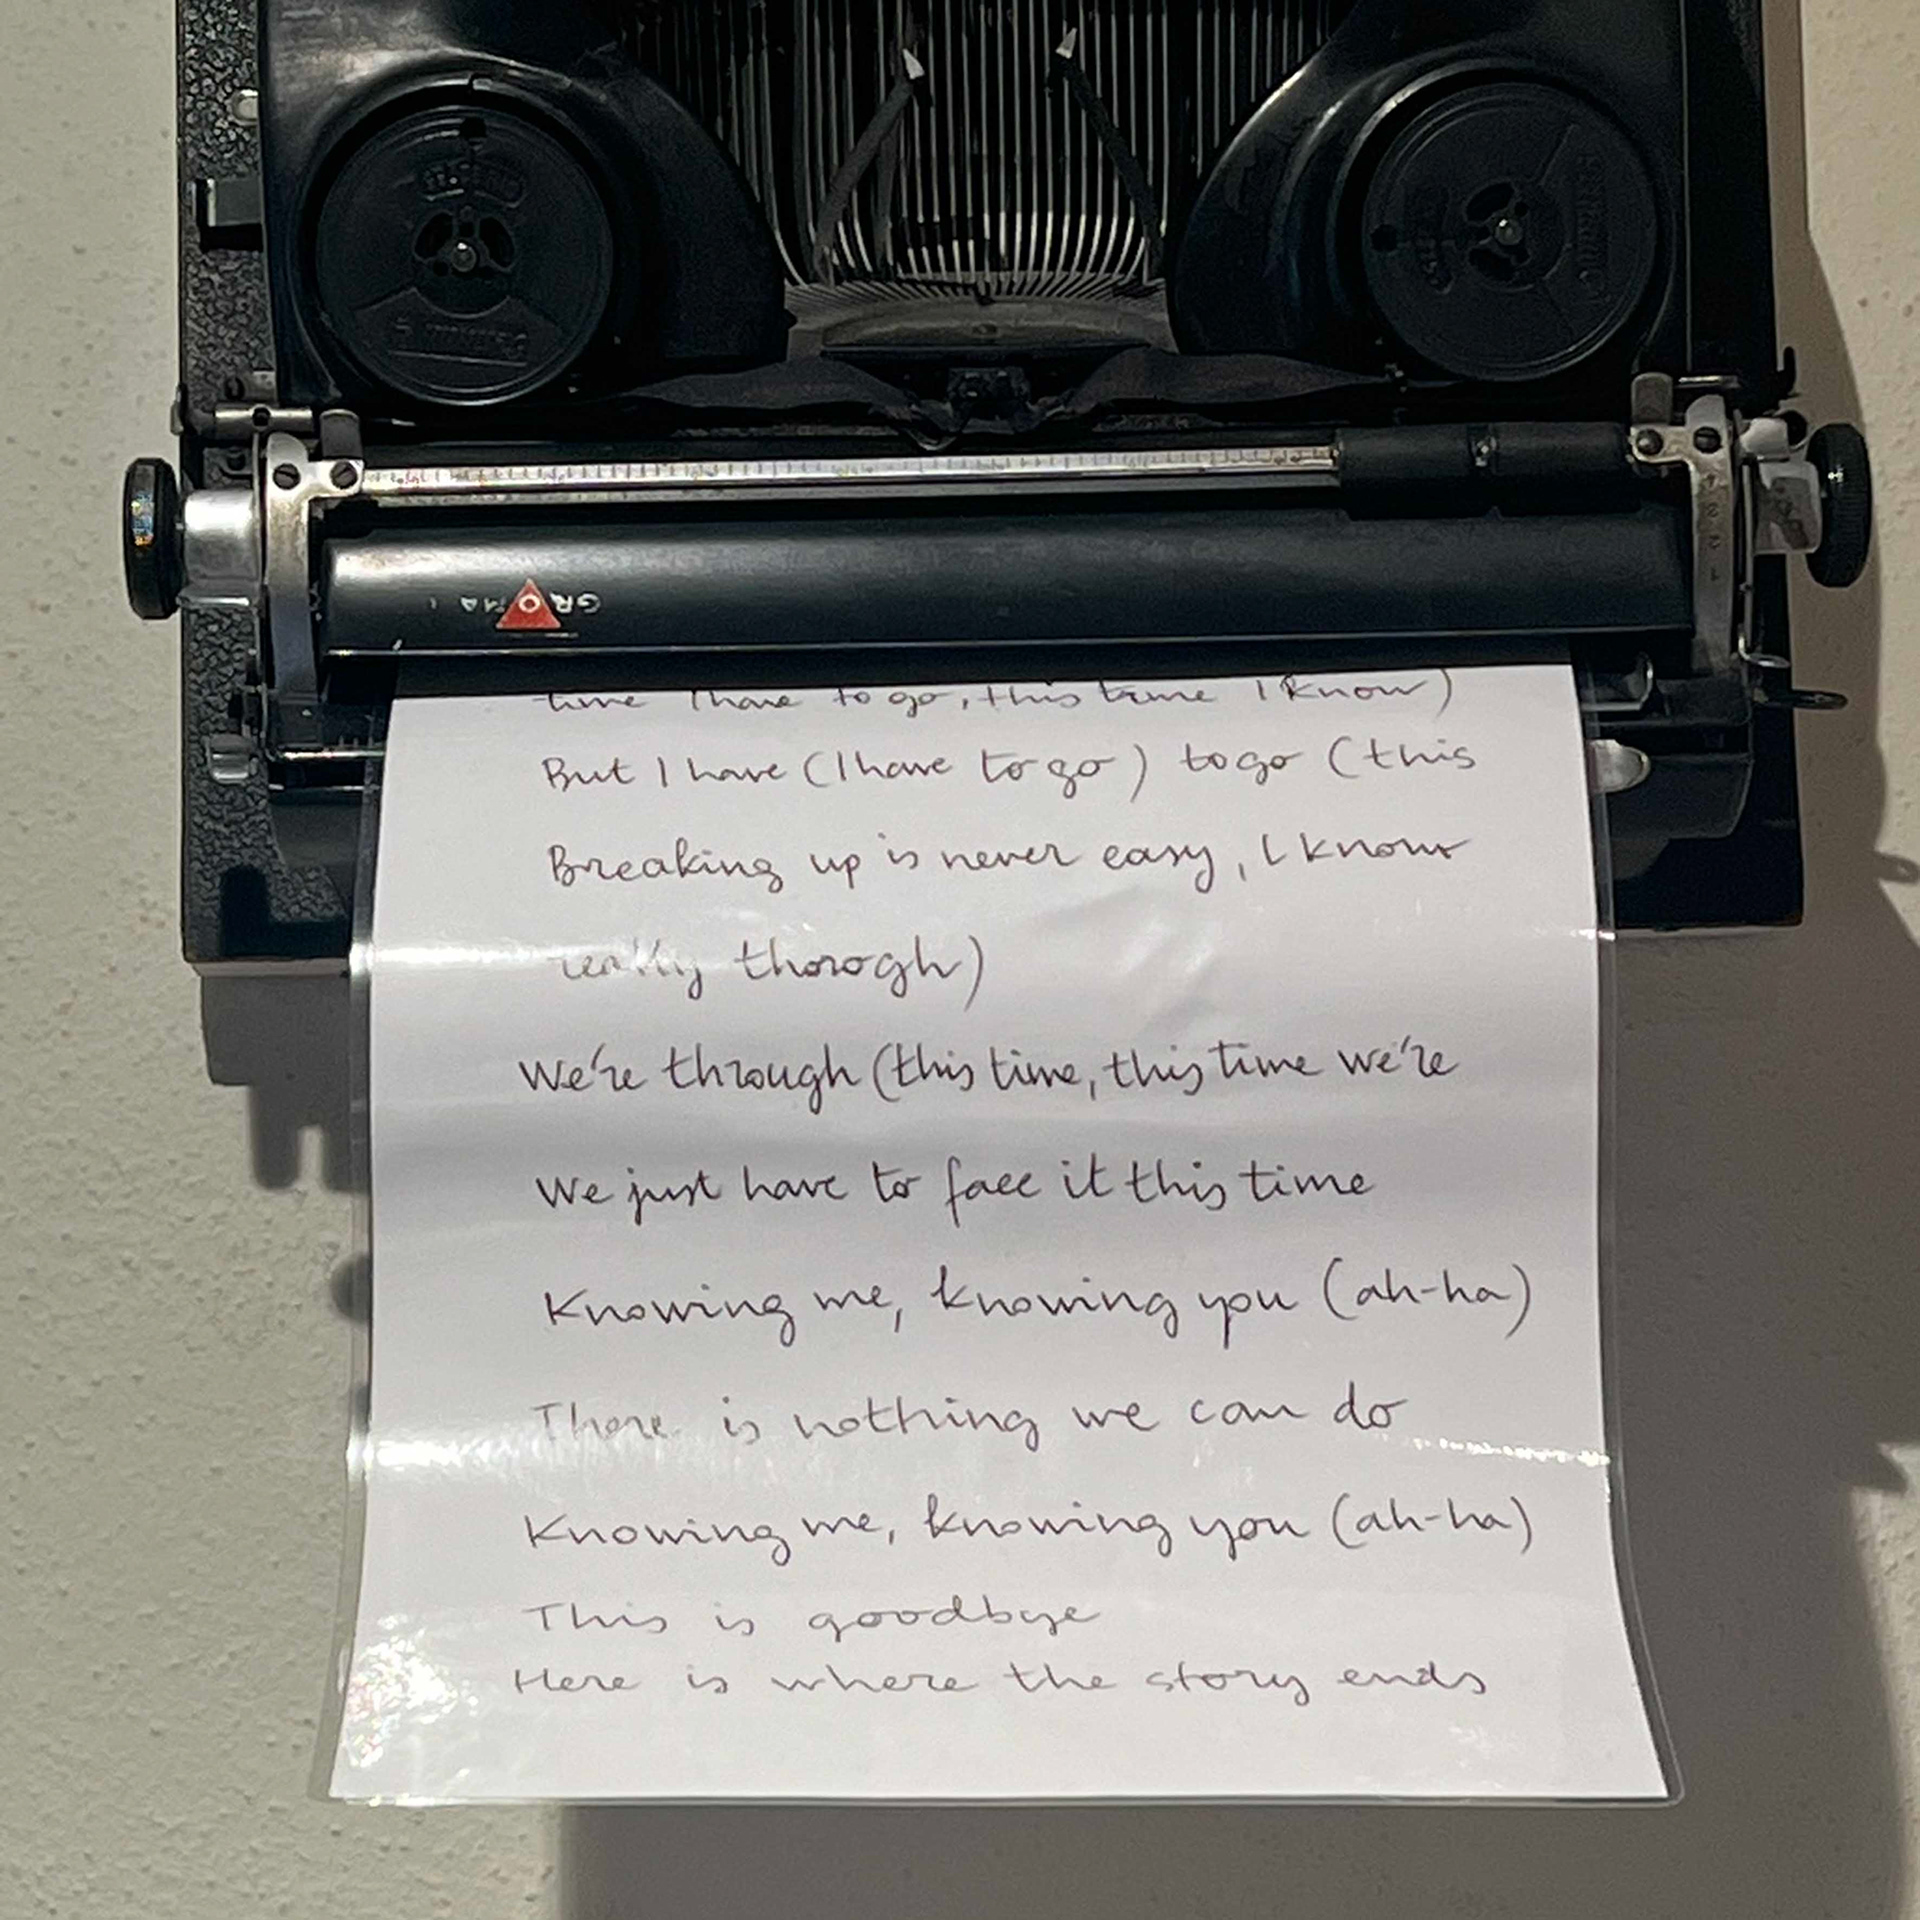 GROMA
time I have to go, this time I know)
But I have (I have to go) to go (this
Breaking up is never easy, I know
really thorogh)
We're through (this time, this time we're
We just have to face it this time
Knowing me, knowing you (ah-ha)
There is nothing we can do
Knowing me, knowing you (ah-ha)
This is goodbye
Here is where the story ends